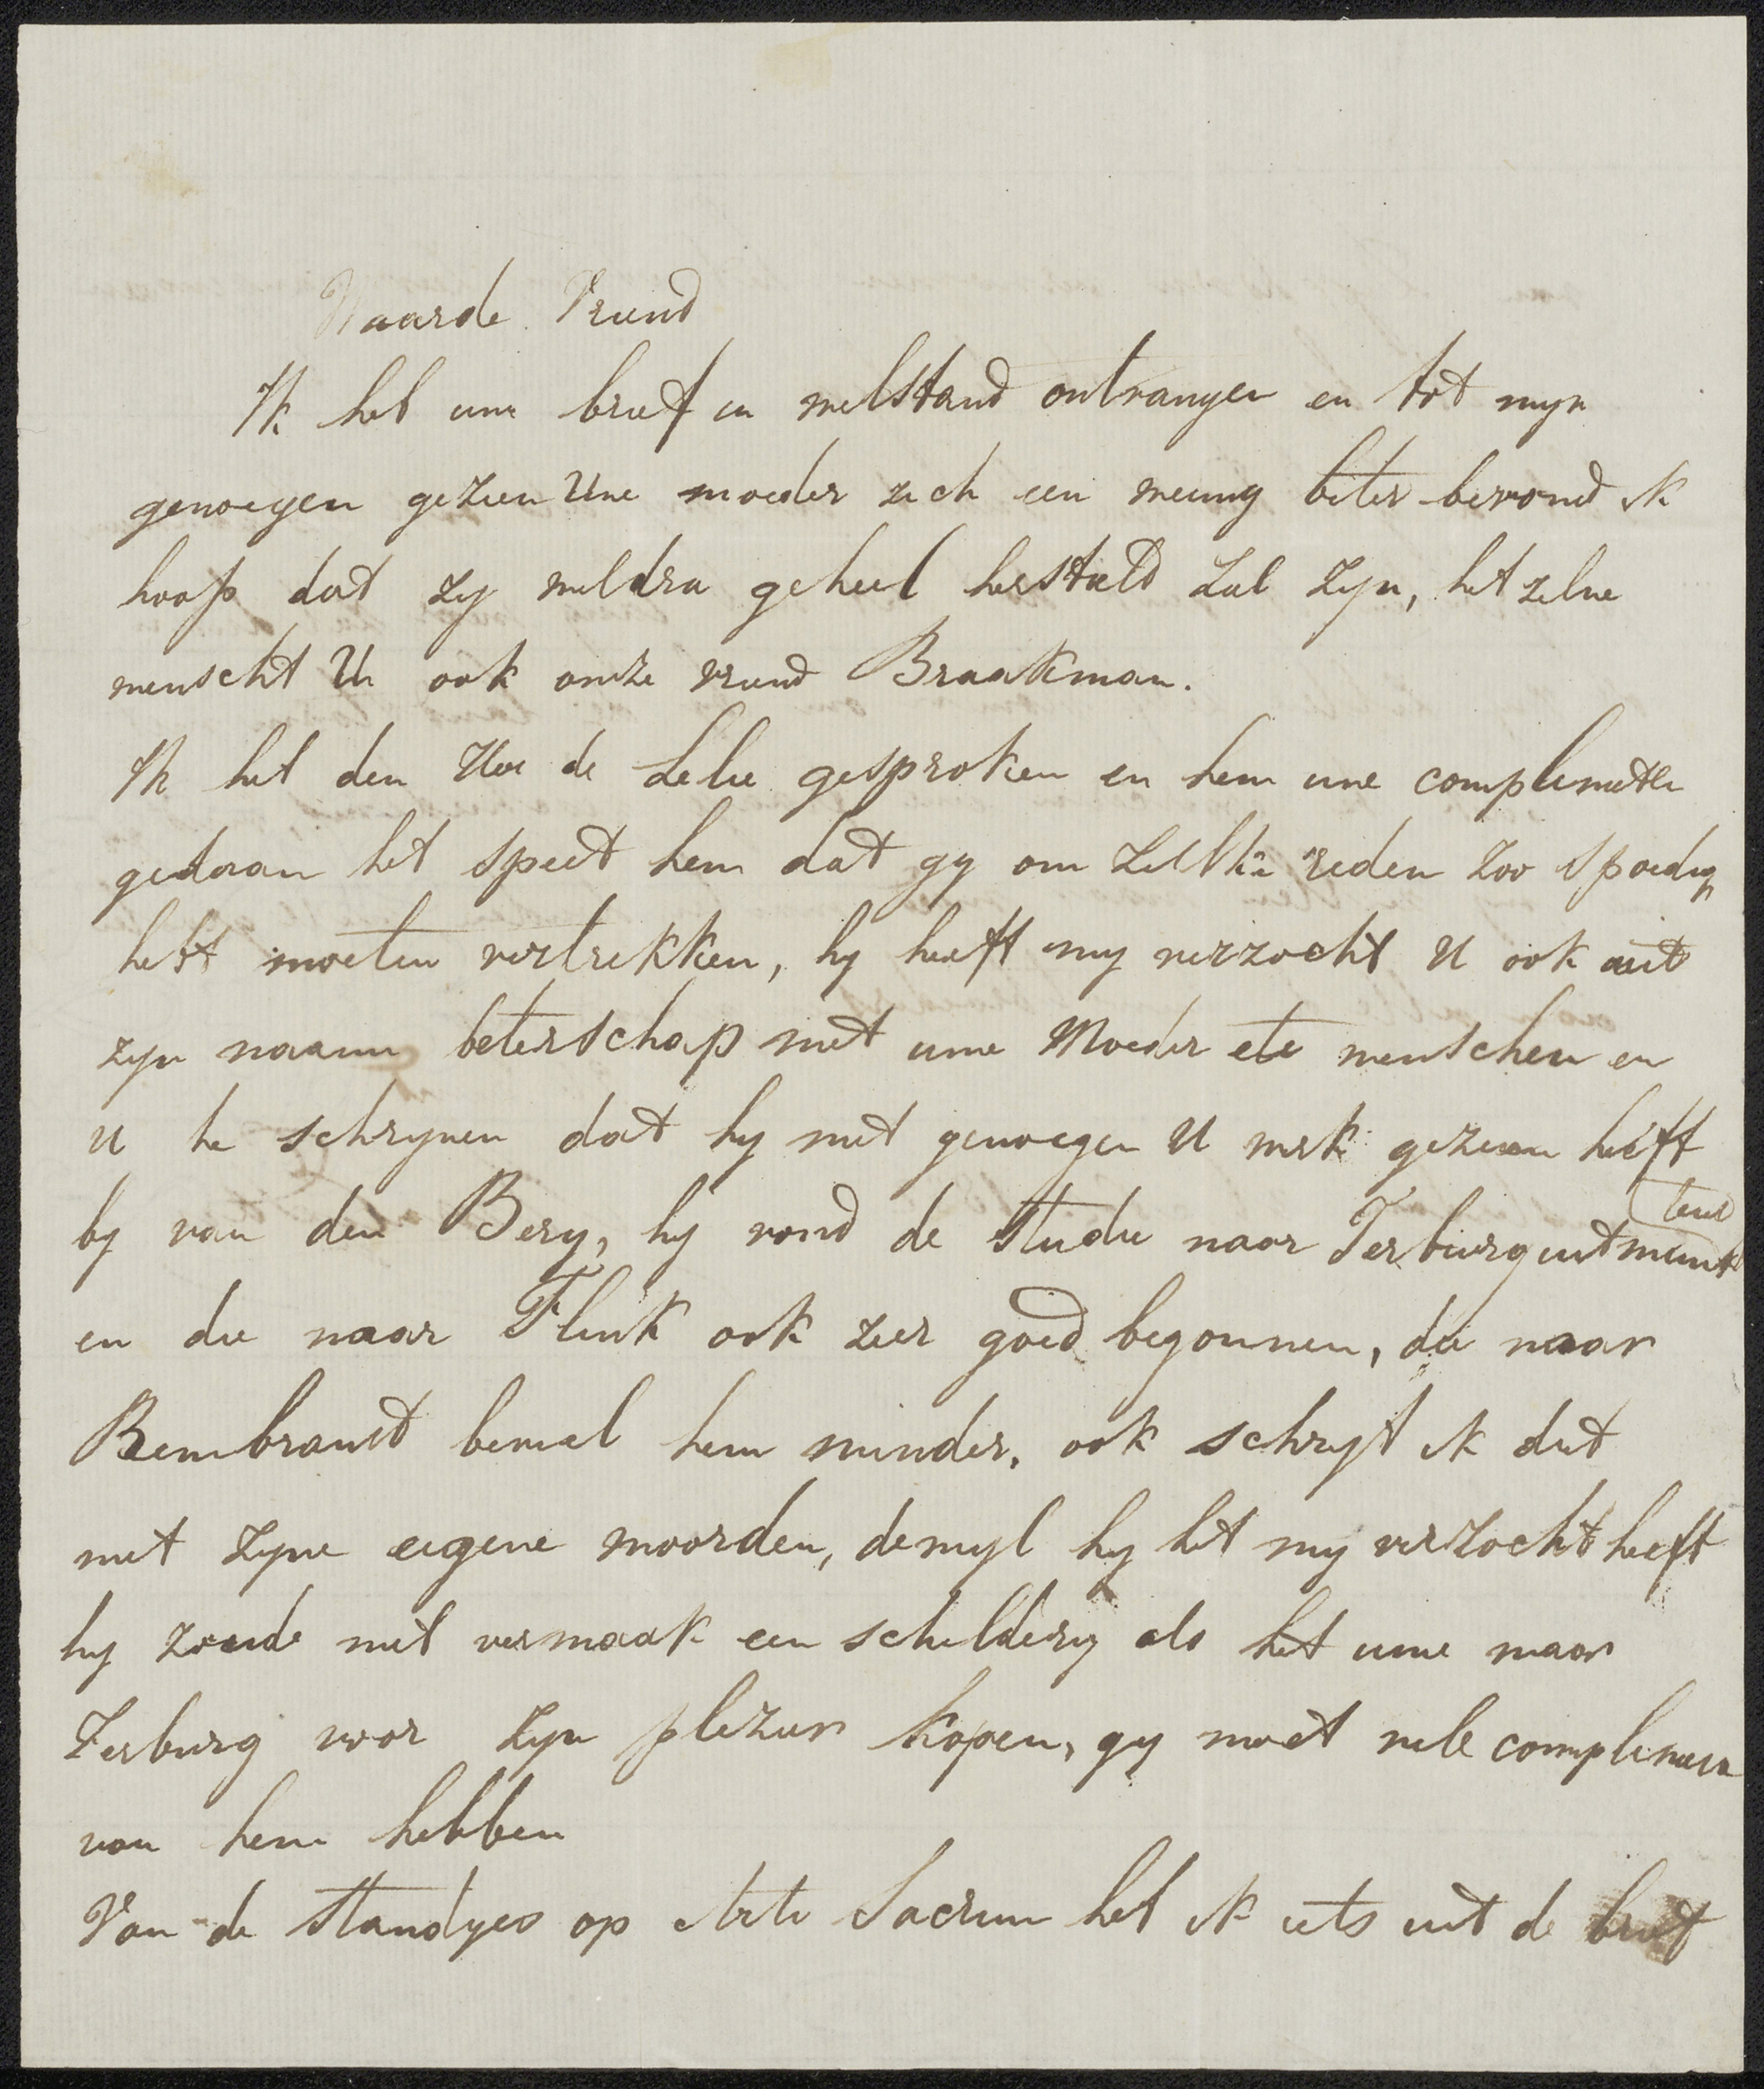 Waarde Vriend
Ik heb uwe brief in welstand ontvangen en tot myn
genoegen gezien Uwe moeder zich een weinig beter bevond ik
hoop dat zy weldra geheel hersteld zal zyn, het zelve
wenscht U ook onze vriend Braakman.
Ik heb den Heer de Lelie gesproken en hem uwe complimeten
gedaan het speet hem dat gy om zulke reden zoo spoedig
hebt moeten vertrekken, hy heeft my verzocht U ook uit
zyn naam beterschap met uwe Moeder te wenschen en
U te schryven dat hy met genoegen U werk gezien heeft
by van den Berg, hy vond de studie naar Terburg uitmuntend
en die naar Flink ook zeer goed begonnen, die naar
Rembrandt beviel hem minder, ook schryf ik dit
met zyne eigene woorden, dewyl hy het my verzocht heeft
hy zoude met vermaak een schildery als het uwe naar
Terburg voor zyn plezier kopen, gy moet vele complimen
van hem hebben
Van de standjes op Arti Sacrum heb ik iets uit de brief